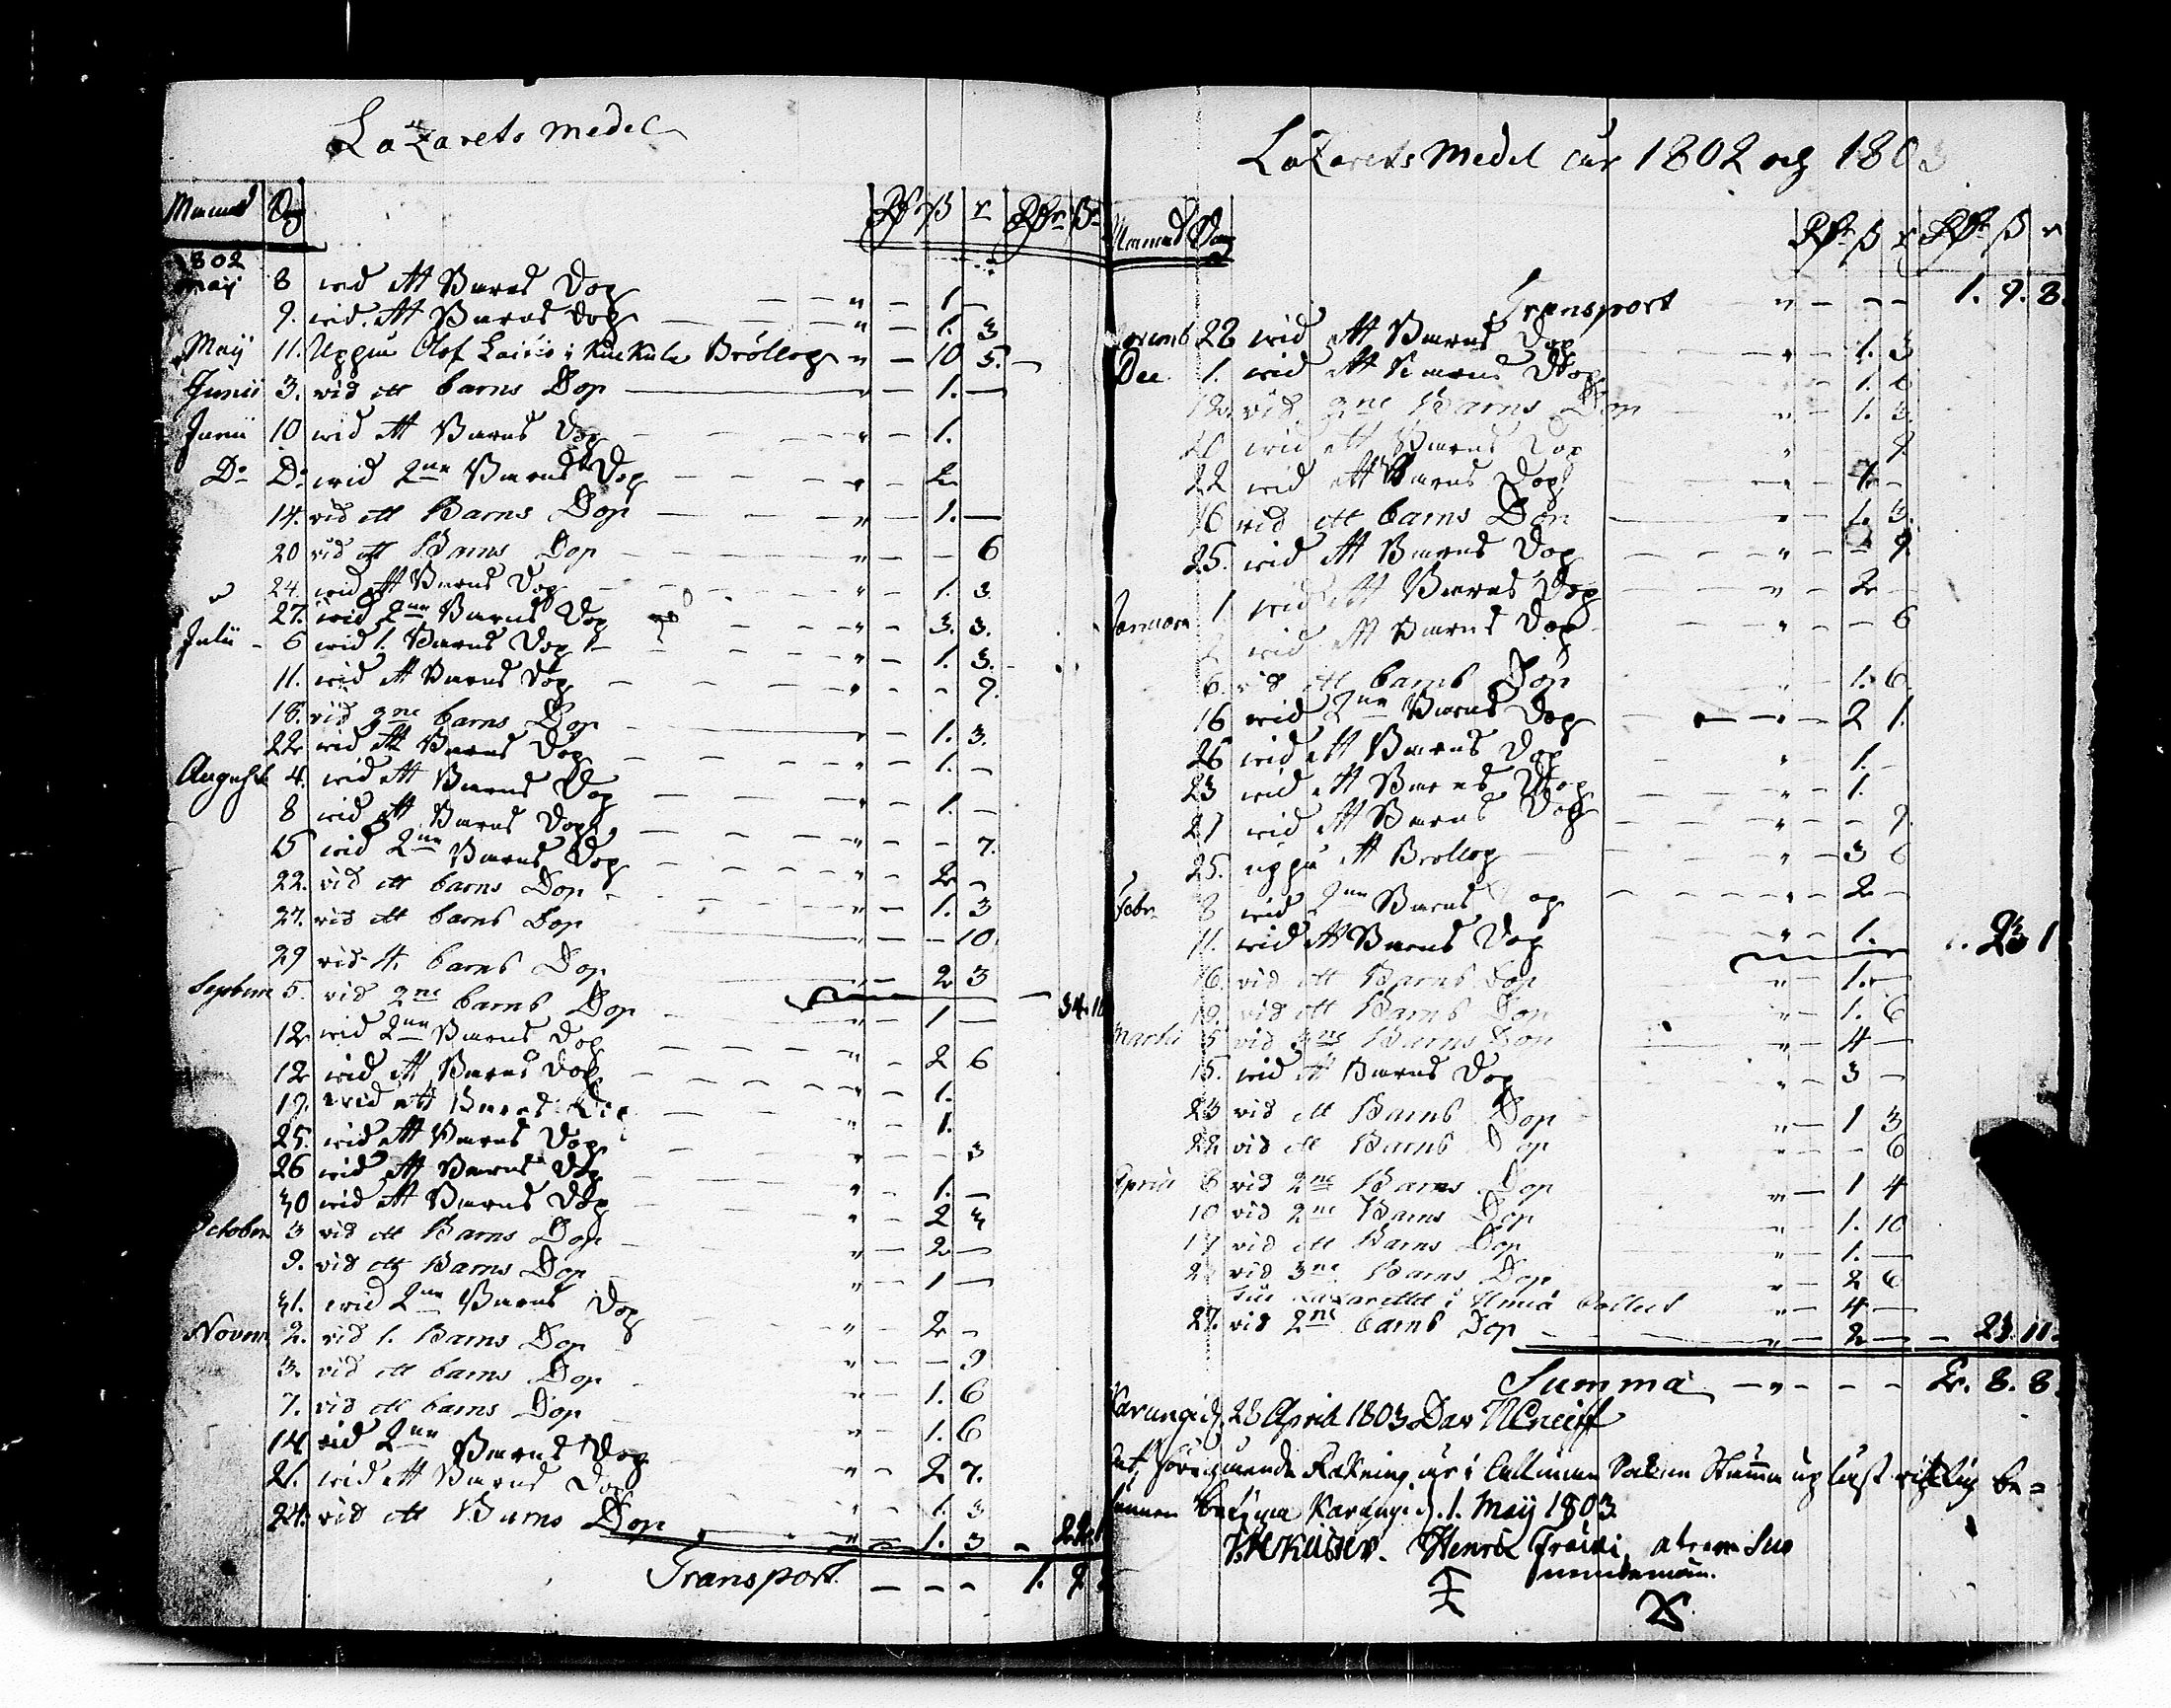 Lazarets medel
Månad Dag Rdr ß r Rdr ß r
1802
Maij 8 wid ett Barns Dop " 1 —
9. wid ett Barns Dop " 1. 3
Maij 11. Uppå Olof i Bröllop " 10 5.
Junii 3. vid ett barns Dop " 1. —
Junii 10 wid ett Barns Dop " 1.
Do Do wid 2ne Barns Dop " 2
14. vid ett Barns Dop " 1. —
20 vid ett Barns Dop " — 6
24. wid ett Barns Dop " 1. 3.
27. wid 2ne Barns Dop " 3. 3.
Julii 6 wid 1. Barns Dop " 1. 3.
11. wid ett Barns Dop " - 9.
18. vid 2ne barns Dop 1. 3.
22 wid ett Barns Dop " 1. -
August 4. wid ett Barns Dop " 1. -
8 wid ett Barns Dop " - 7.
15 wid 2ne Barns Dop " 2 -
22. vid ett barns Dop " 1. 3
27. vid ett barns Dop " - 10.
29 vid 4. barns Dop " 2 3
Septem 5. vid 2ne barns Dop " 1 — 34. 10
12 wid 2ne Barns Dop " 2 6
12 wid ett Barns Dop " 1.
19. wid ett Barns Dop " 1.
25. wid ett Barns Dop " - 3
26 wid ett Barns Dop " 1. —
30 wid ett Barns Dop " 2 3
October 3 vid ett Barns Dop " 2 —
9. vid ett Barns Dop " 1 —
31. wid 2ne Barns Dop " 2 -
Novem 2. vid 1. Barns Dop " - 9
3. vid ett barns Dop " 1. 6
7. vid ett barns Dop " 1. 6
14. wid 2ne Barns Dop " 2 7.
21. wid ett Barns Dop " 1. 3
24. vid ett Barns Dop " 1. 3 22
Transport 1. 9
Lazarets Medel för 1802 och 1803
Månad Dag Rdr ß r Rdr ß r
Transport " 1. 9. 8.
Novemb 22 wid ett Barns Dop " 1. 3
Dec. 1. wid ett Barns Dop " 1. 6
12. vid 2ne Barns Dop " 1. 3.
wid ett Barns Dop " 9.
22 wid ett Barns Dop " 1. -
16 vid ett barns Dop " 1. 3.
25. wid ett Barns Dop " - 9.
Januari 1 wid ett Barns Dop " 2 -
wid ett Barns Dop " - 6
6. vid ett barns Dop " 1. 6
16 wid 2ne Barns Dop " 2 1.
26 wid ett Barns Dop " 1. -
23 wid ett Barns Dop " 1.
27 wid ett Barns Dop " - 9.
25. uppå ett Bröllop " 3 6
Febr 8 wid 2ne Barns Dop " 2 -
11. wid ett Barns Dop " 1. 23 1
16. vid ett Barns Dop " 1. —
19. vid ett Barns Dop " 1. 6
Martii 5 vid 3ne Barns Dop " 4 —
15. wid ett Barns Dop " 3 —
23 vid ett Barns Dop " 1 3
22 vid ett Barns Dop " — 6
Aprill 8 vid 2ne Barns Dop " 1 4
10 vid 2ne Barns Dop " 1. 10
17 vid ett Barns Dop " 1. —
vid 3ne Barns Dop " 2 6
Till Lazarettet i Umeå Collect " 4 —
27. vid 2ne barns Dop " 2 — 23. 11.
Summa " 2. 8. 8.
Karungi d. 28 April 1803
At föregående Räkning är i Sokne Stämma upläst riktig be=
Karungi d. 1. Maij 1803.
Henric